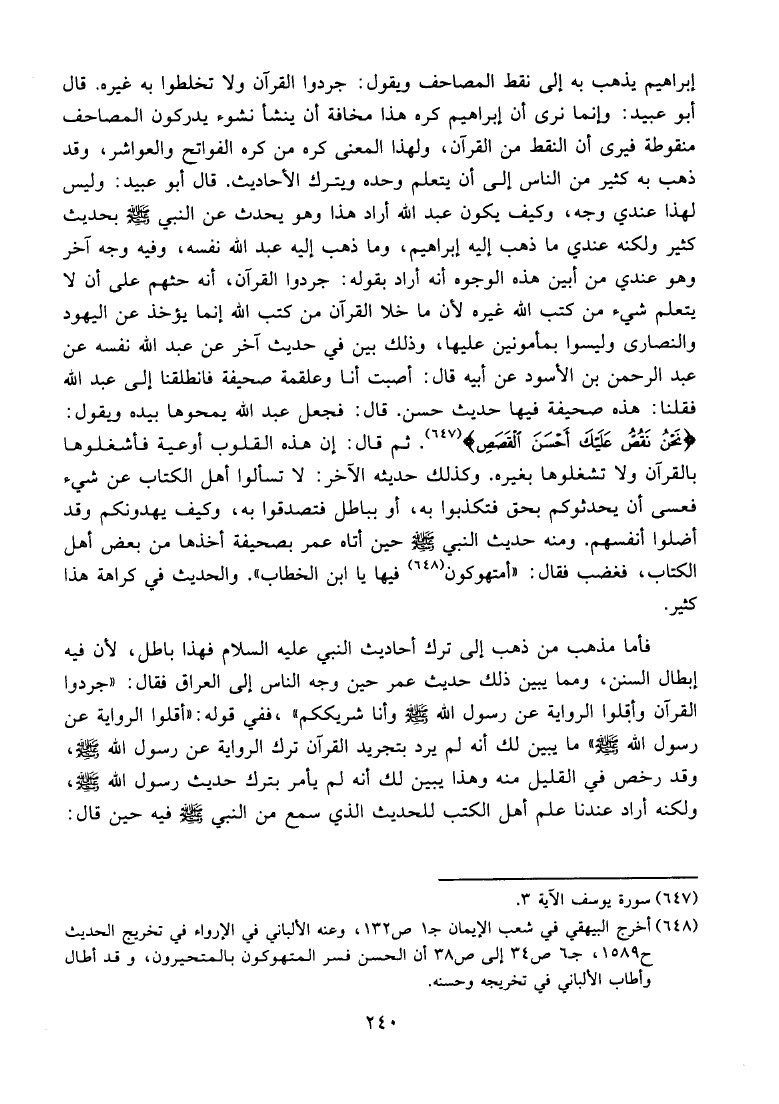 إبراهيم يذهب به إلى نقط المصاحف ويقول: جردوا القرآن ولا تخلطوا به غيره. قال
أبو عبيد: وإنما نرى أن إبراهيم كره هذا مخافة أن ينشأ نشوء يدركون المصاحف
منقوطة فيرى أن النقط من القرآن، ولهذا المعنى كره من كره الفواتح والعواشر، وقد
ذهب به كثير من الناس إلى أن يتعلم وحده ويترك الأحاديث. قال أبو عبيد: وليس
لهذا عندي وجه، وكيف يكون عبد الله أراد هذا وهو يحدث عن النبي ﷺ بحديث
كثير ولكنه عندي ما ذهب إليه إبراهيم، وما ذهب إليه عبد الله نفسه، وفيه وجه آخر
وهو عندي من أبين هذه الوجوه أنه أراد بقوله: جردوا القرآن، أنه حثهم على أن لا
يتعلم شيء من كتب الله غيره لأن ما خلا القرآن من كتب الله إنما يؤخذ عن اليهود
والنصارى وليسوا بمأمونين عليها، وذلك بين في حديث آخر عن عبد الله نفسه عن
عبد الرحمن بن الأسود عن أبيه قال: أصبت أنا وعلقمة صحيفة فانطلقنا إلى عبد الله
فقلنا: هذه صحيفة فيها حديث حسن. قال: فجعل عبد الله يمحوها بيده ويقول:
﴿نَحْنُ نَقُصُّ عَلَيْكَ أَحْسَنَ ٱلْقَصَصِ﴾(٦٤٧). ثم قال: إن هذه القلوب أوعية فأشغلوها
بالقرآن ولا تشغلوها بغيره. وكذلك حديثه الآخر: لا تسألوا أهل الكتاب عن شيء
فعسى أن يحدثوكم بحق فتكذبوا به، أو بباطل فتصدقوا به، وكيف يهدونكم وقد
أضلوا أنفسهم. ومنه حديث النبي ﷺ حين أتاه عمر بصحيفة أخذها من بعض أهل
الكتاب، فغضب فقال: «أمتهوكون(٦٤٨) فيها يا ابن الخطاب». والحديث في كراهة هذا
كثير.
فأما مذهب من ذهب إلى ترك أحاديث النبي عليه السلام فهذا باطل، لأن فيه
إبطال السنن، ومما يبين ذلك حديث عمر حين وجه الناس إلى العراق فقال: «جردوا
القرآن وأقلوا الرواية عن رسول الله ﷺ وأنا شريككم» ،ففي قوله:«أقلوا الرواية عن
رسول الله ﷺ» ما يبين لك أنه لم يرد بتجريد القرآن ترك الرواية عن رسول الله ﷺ،
وقد رخص في القليل منه وهذا يبين لك أنه لم يأمر بترك حديث رسول الله ﷺ،
ولكنه أراد عندنا علم أهل الكتب للحديث الذي سمع من النبي ﷺ فيه حين قال:
(٦٤٧) سورة يوسف الآية ٣.
(٦٤٨) أخرج البيهقي في شعب الإيمان جـ١ ص١٣٢، وعنه الألباني في الإرواء في تخريج الحديث
ح١٥٨٩، جـ٦ ص٣٤ إلى ص٣٨ أن الحسن فسر المتهوكون بالمتحيرون، و قد أطال
وأطاب الألباني في تخريجه وحسنه.
٢٤٠